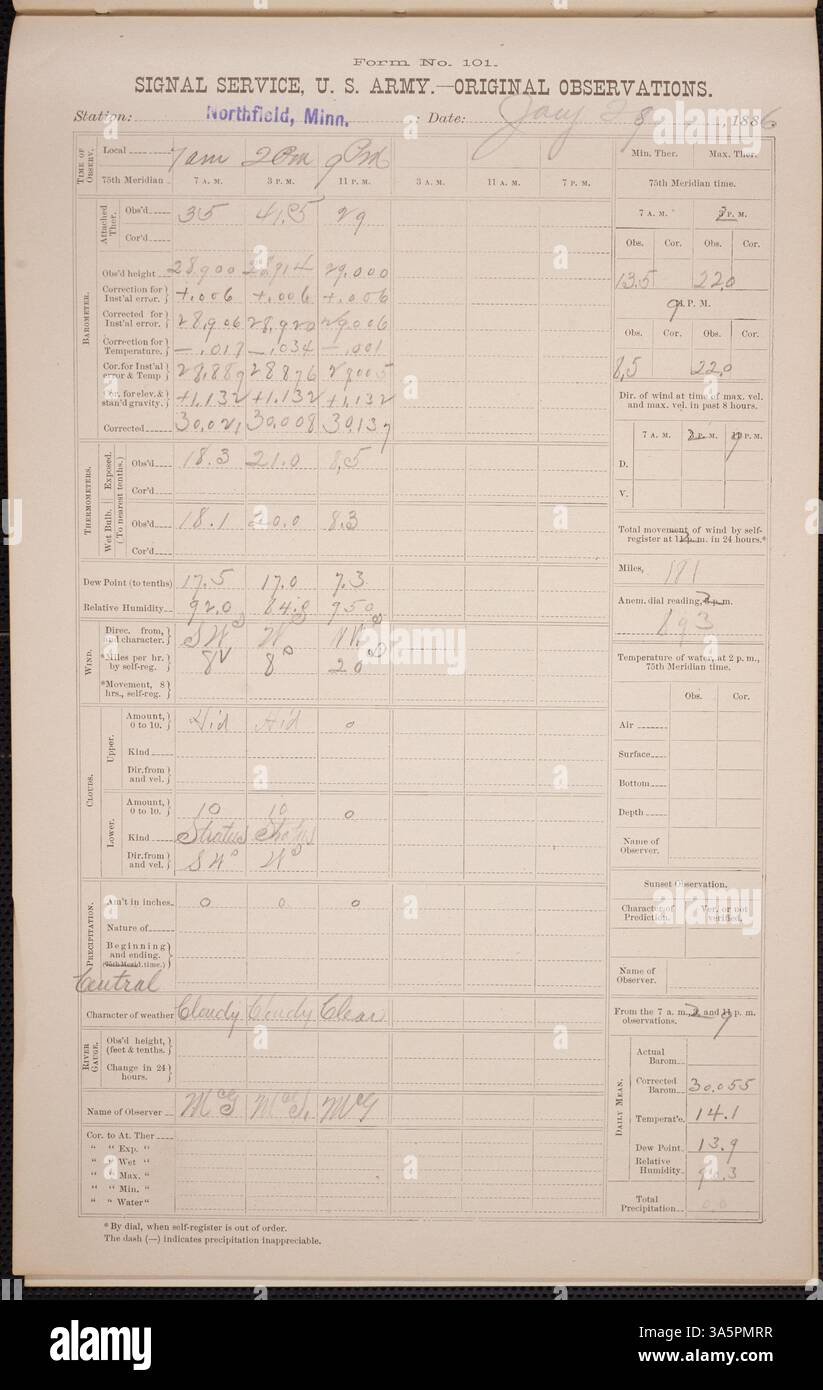 Form No. 101.
SIGNAL SERVICE, U. S. ARMY.—ORIGINAL OBSERVATIONS.
Station: Northfield, Minn. : Date: Jany 28, 1886
TIME OF OBSERV.
Local 7 am 2 Pm 9 Pm
75th Meridian 7 A. M. 3 P. M. 11 P. M. 3 A. M. 11 A. M. 7 P. M.
BAROMETER.
Attached Ther.
Obs'd 35 41.5 29
Cor'd
Obs'd height 28.900 28.914 29.000
Correction for Inst'al error. +.006 +.006 +.006
Corrected for Inst'al error. 28.906 28.920 29.006
Correction for Temperature. —.017 —.034 —.001
Cor. for Inst'al error & Temp 28.889 28.876 29.005
Cor. for elev. & stan'd gravity. +1.132 +1.132 +1.132
Corrected 30.021 30.008 30.137
THERMOMETERS.
(To nearest tenths.)
Exposed.
Obs'd 18.3 21.0 8.5
Cor'd
Wet Bulb.
Obs'd 18.1 20.0 8.3
Cor'd
Dew Point (to tenths) 17.5 17.0 7.3
Relative Humidity 92.0 84.0 95.0
WIND.
Direc. from, and character. SW W NW
*Miles per hr. by self-reg. 8 8 20
*Movement, 8 hrs., self-reg.
CLOUDS.
Upper.
Amount, 0 to 10. Hid Hid 0
Kind
Dir. from and vel.
Lower.
Amount, 0 to 10. 10 10 0
Kind Stratus Stratus
Dir. from and vel. SW W
PRECIPITATION.
Am't in inches. 0 0 0
Nature of
Beginning and ending. (75th Merid. time.)
Central
Character of weather Cloudy Cloudy Clear
RIVER GAUGE.
Obs'd height, (feet & tenths.
Change in 24 hours.
Name of Observer McG McG. McG
Cor. to At. Ther
" " Exp. "
" " Wet "
" " Max. "
" " Min. "
" " Water "
* By dial, when self-register is out of order.
The dash (—) indicates precipitation inappreciable.
Min. Ther. Max. Ther.
75th Meridian time.
7 A. M. 3 P. M.
Obs. Cor. Obs. Cor.
13.5 22.0
9 P. M.
Obs. Cor. Obs. Cor.
8.5 22.0
Dir. of wind at time of max. vel. and max. vel. in past 8 hours.
7 A. M. P. M. P. M.
D.
V.
Total movement of wind by self-register at p. m. in 24 hours.*
Miles, 181
Anem. dial reading, p. m.
893
Temperature of water, at 2 p. m., 75th Meridian time.
Obs. Cor.
Air
Surface
Bottom
Depth
Name of Observer.
Sunset Observation.
Character of Prediction. Ver. or not verified.
Name of Observer.
From the 7 a. m., 2 and 9 p. m. observations.
DAILY MEAN.
Actual Barom
Corrected Barom. 30.055
Temperat'e. 14.1
Dew Point 13.9
Relative Humidity 90.3
Total Precipitation 0.0
alamy
Image ID: 3A5PMRR
www.alamy.com